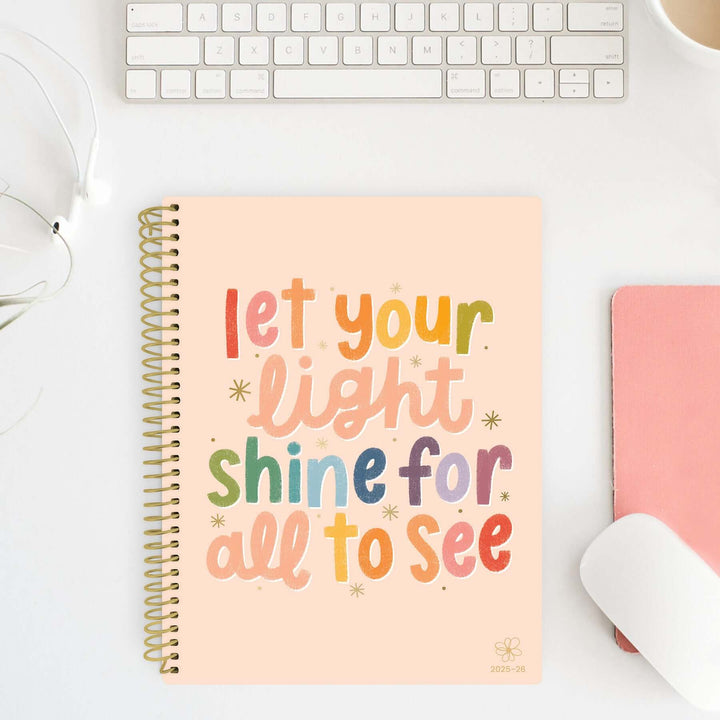 caps lock A S D F G H J K L : ; " ' return
shift Z X C V B N M < , > . ? / shift
fn control option command command option
let your
light
shine for
all to see
2025-26